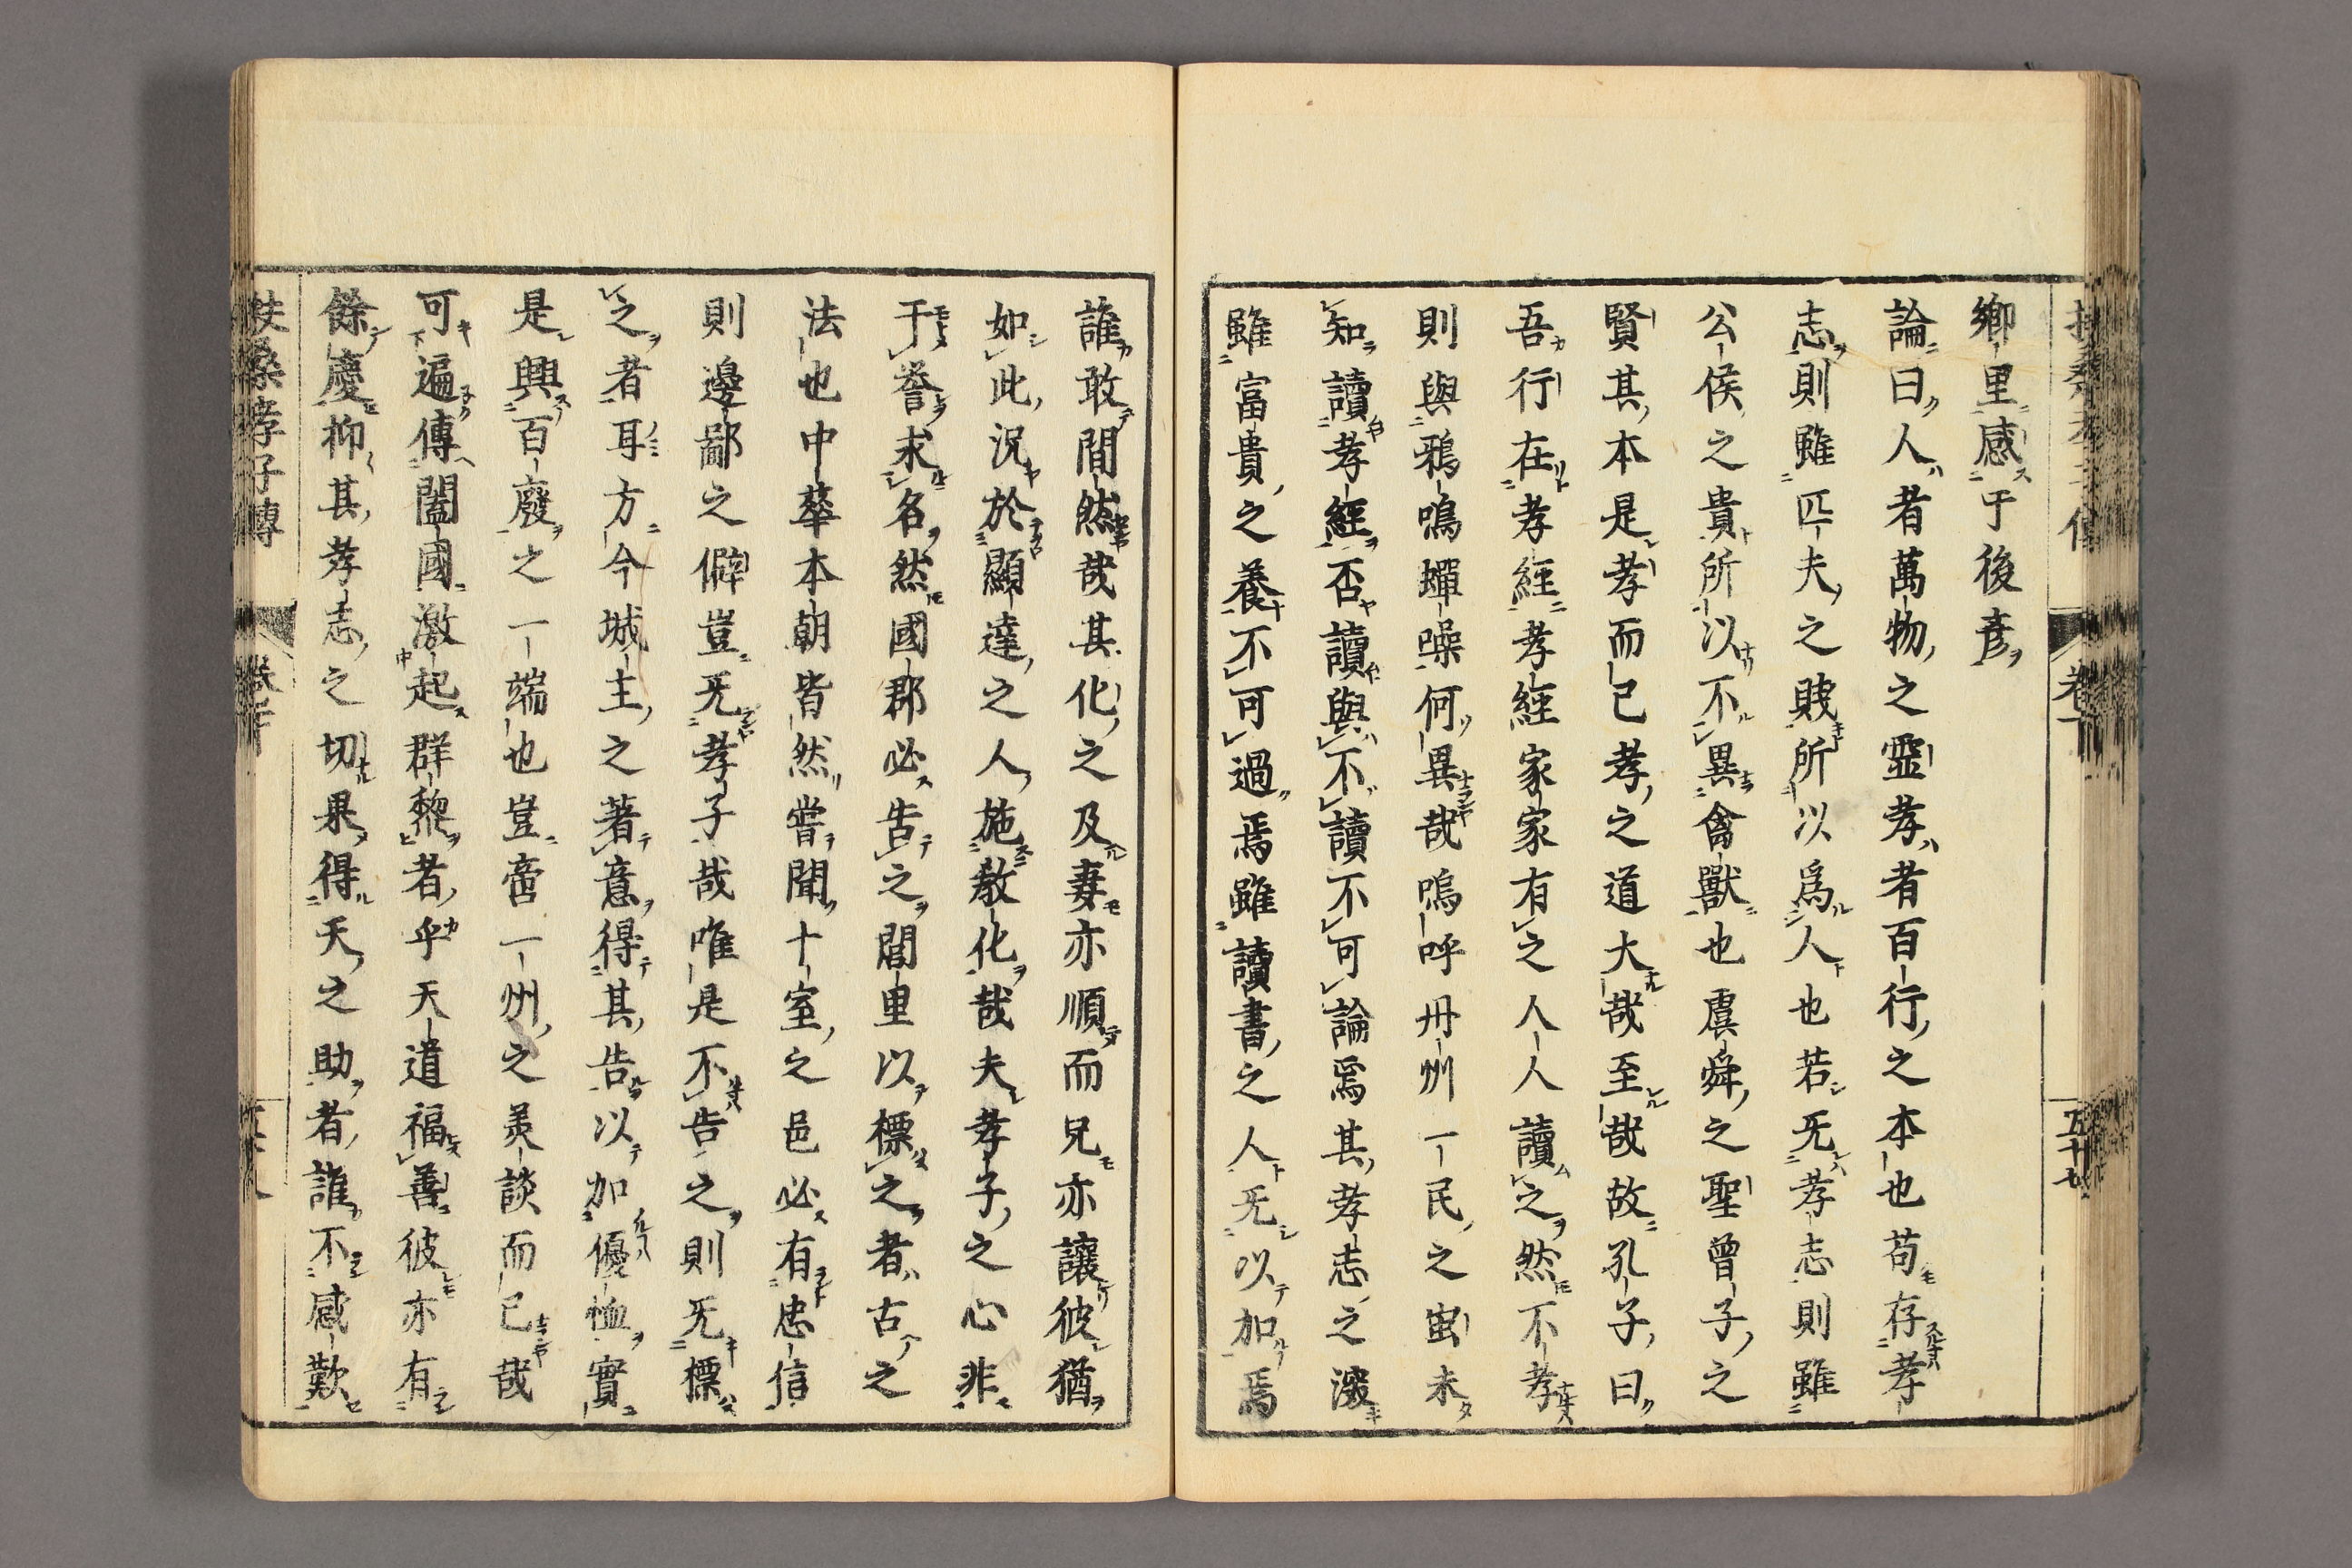 鄉里感于後彥
論曰人者萬物之靈孝者百行之本也苟存孝
志則雖匹夫之賎所以爲人也若旡孝志則雖
公侯之貴所以不異禽獸也虞舜之聖曾子之
賢其本是孝而已孝之道大哉至哉故孔子曰
吾行在孝經孝經家家有之人人讀之然不孝
則與鴉鳴蟬噪何異哉嗚呼丹州一民之䖝未
知讀孝經否讀與不讀不可論焉其孝志之深
雖富貴之養不可過焉雖讀書之人旡以加焉
誰敢間然哉其化之及妻亦順而兄亦讓彼猶
如此況於顯達之人施教化哉夫孝子之心非
于譽求名然國郡必告之閭里以標之者古之
法也中華本朝皆然嘗聞十室之邑必有忠信
則邊鄙之僻豈旡孝子哉唯是不告之則旡標
之者耳方今城主之著意得其告以加優恤實
是興百廢之一端也豈啻一州之美談而已哉
可遍傳闔國激起群黎者乎天道福善彼亦有
餘慶抑其孝志之切果得天之助者誰不感歎
扶桑孝子傳
卷下
五十七